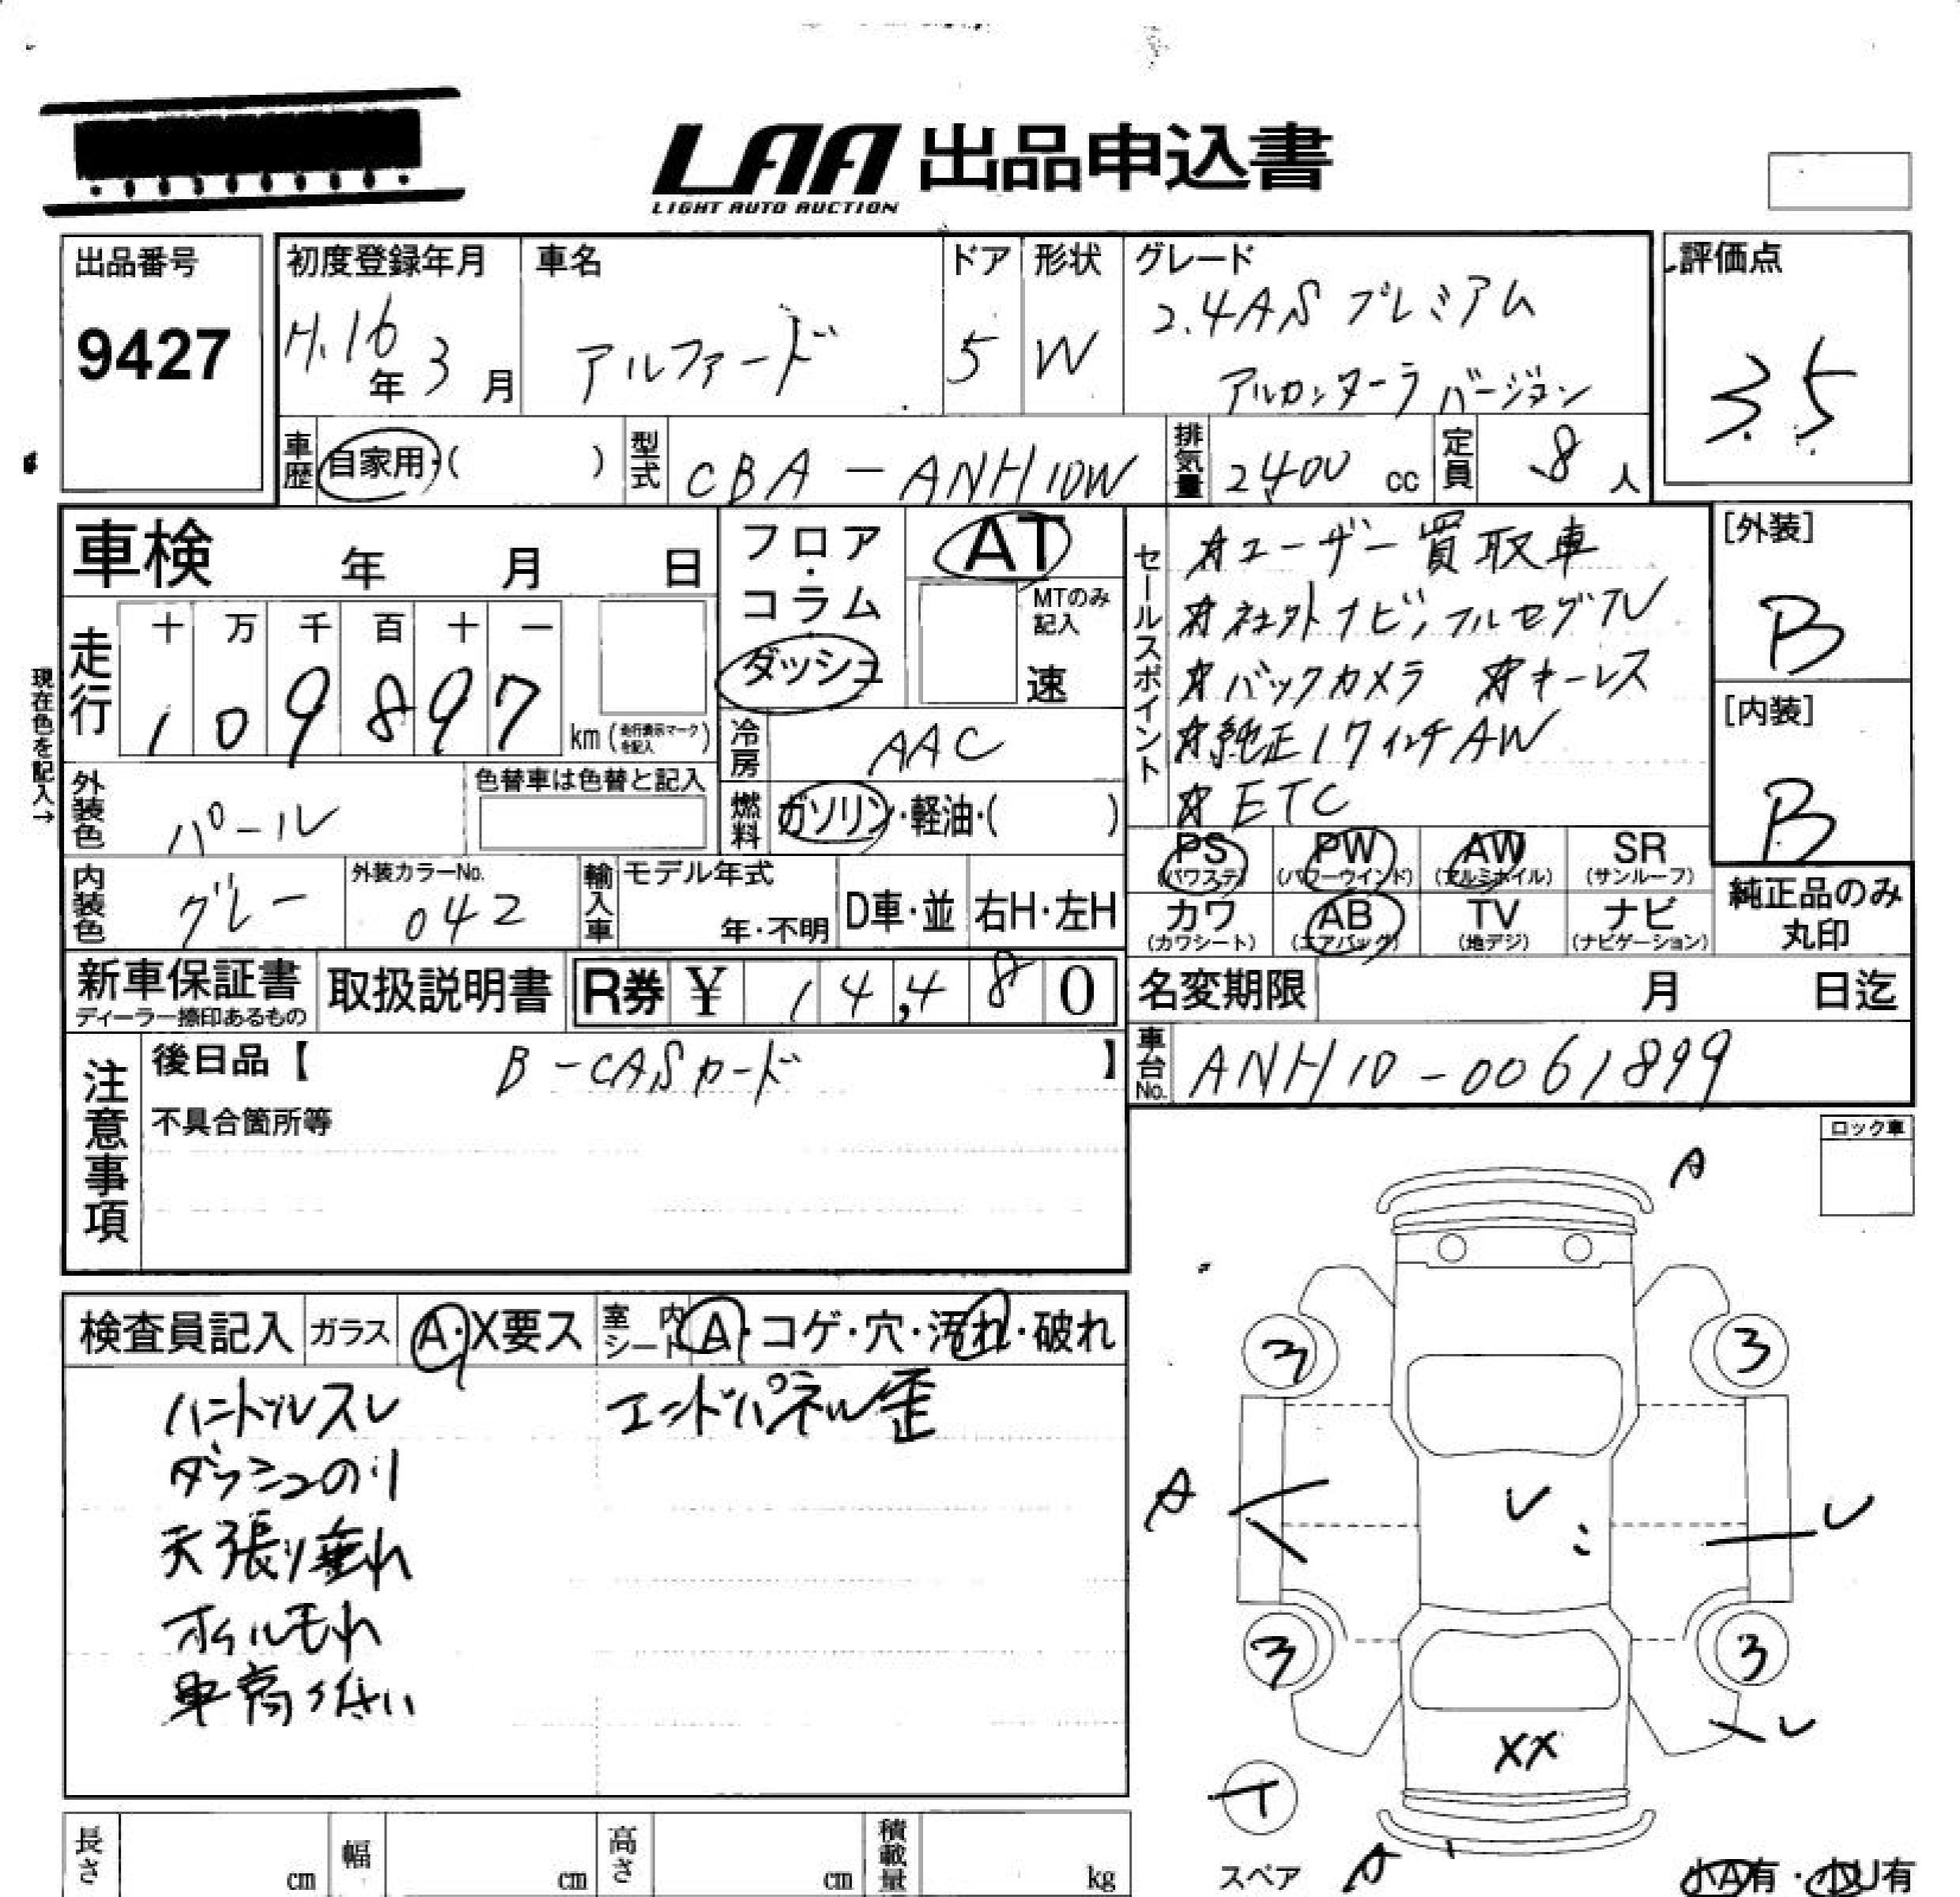 LAA 出品申込書
LIGHT AUTO AUCTION
出品番号
9427
初度登録年月
H.16年 3月
車名
アルファード
ドア
5
形状
W
グレード
2.4AS プレミアム
アルカンターラ バージョン
評価点
3.5
車歴
自家用・( )
型式
CBA-ANH10W
排気量
2400 cc
定員
8人
車検 年 月 日
現在色を記入→
走行
十 万 千 百 十 一
1 0 9 8 9 7
km (走行表示マークを記入)
フロア・コラム
ダッシュ
AT
MTのみ記入
速
冷房
AAC
燃料
ガソリン・軽油・( )
セールスポイント
☆ユーザー買取車
☆社外ナビ、フルセグTV
☆バックカメラ ☆キーレス
☆純正17インチAW
☆ETC
[外装]
B
[内装]
B
外装色
パール
色替車は色替と記入
内装色
グレー
外装カラーNo.
042
輸入車
モデル年式
年・不明
D車・並
右H・左H
PS (パワステ)
PW (パワーウインド)
AW (アルミホイル)
SR (サンルーフ)
カワ (カワシート)
AB (エアバッグ)
TV (地デジ)
ナビ (ナビゲーション)
純正品のみ
丸印
新車保証書
ディーラー捺印あるもの
取扱説明書
R券 ¥ 14,480
名変期限 月 日迄
車台No.
ANH10-0061899
注意事項
後日品【 B-CASカード 】
不具合箇所等
ロック車
検査員記入
ガラス
A・X要ス
室内シート
A・コゲ・穴・汚れ・破れ
ハンドルスレ
ダッシュのり
天張り垂れ
オイルモれ
車高低い
エンドパネル歪
A
3
3
A
U
U
3
3
U
XX
スペア
A
小A有・小U有
長さ cm
幅 cm
高さ cm
積載量 kg